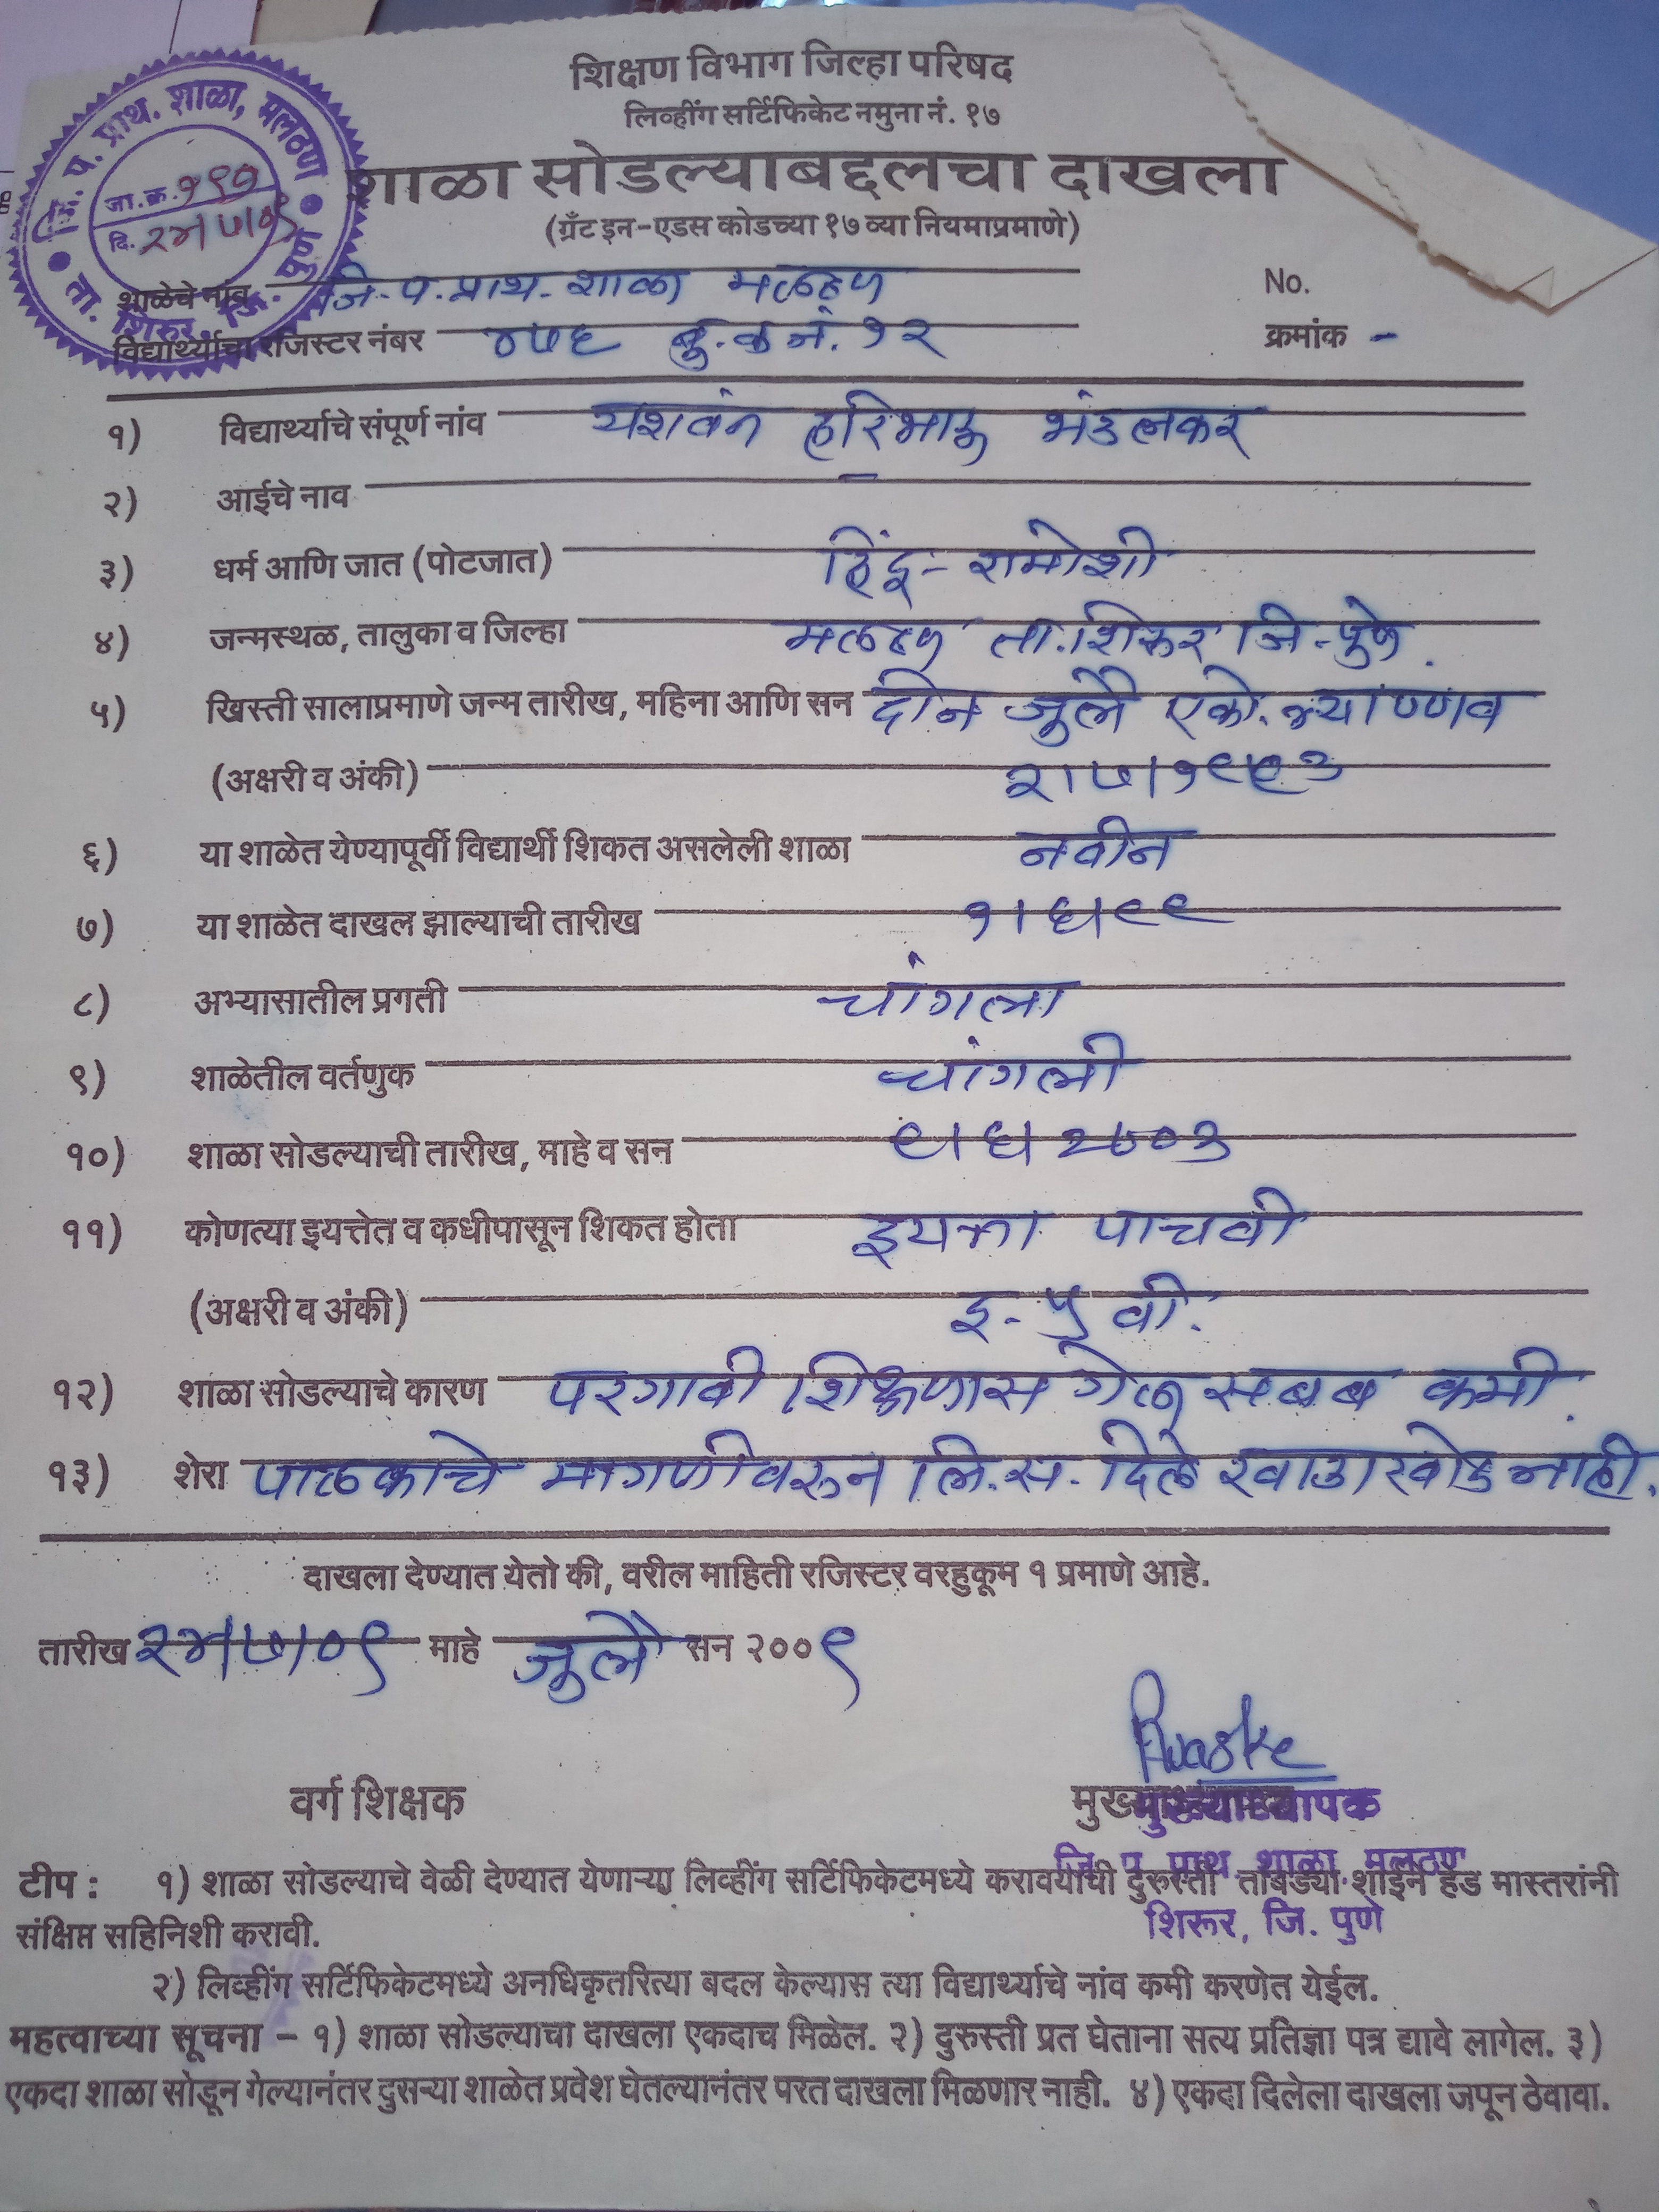 शिक्षण विभाग जिल्हा परिषद
लिव्हींग सर्टिफिकेट नमुना नं. १७
शाळा सोडल्याबद्दलचा दाखला
(ग्रँट इन-एडस कोडच्या १७ व्या नियमाप्रमाणे)
जि. प. प्राथ. शाळा, मलठण
ता. शिरुर, जि. पुणे
जा.क्र. १९७
दि. २४।७।०९
शाळेचे नांव जि.प.प्राथ.शाळा मलठण No.
विद्यार्थ्याचा रजिस्टर नंबर ४७६ बु.क नं. १२ क्रमांक -
१) विद्यार्थ्याचे संपूर्ण नांव यशवंत हरिभाऊ भंडलकर
२) आईचे नाव -
३) धर्म आणि जात (पोटजात) हिंदू - रामोशी
४) जन्मस्थळ, तालुका व जिल्हा मलठण ता.शिरूर जि-पुणे.
५) खिस्ती सालाप्रमाणे जन्म तारीख, महिना आणि सन दोन जुलै एको. त्र्याण्णव
(अक्षरी व अंकी) २।७।१९९३
६) या शाळेत येण्यापूर्वी विद्यार्थी शिकत असलेली शाळा नवीन
७) या शाळेत दाखल झाल्याची तारीख १।६।९९
८) अभ्यासातील प्रगती चांगला
९) शाळेतील वर्तणुक चांगली
१०) शाळा सोडल्याची तारीख, माहे व सन ९।६।२००३
११) कोणत्या इयत्तेत व कधीपासून शिकत होता इयत्ता पाचवी
(अक्षरी व अंकी) इ-५ वी.
१२) शाळा सोडल्याचे कारण परगावी शिक्षणास गेले सबब कमी.
१३) शेरा पालकाचे मागणीवरून लि.स. दिले खाडाखोड नाही.
दाखला देण्यात येतो की, वरील माहिती रजिस्टर वरहुकूम १ प्रमाणे आहे.
तारीख २४।७।०९ माहे जुलै सन २००९
वर्ग शिक्षक मुख्याध्यापक
जि प प्राथ शाळा मलठण
शिरूर, जि. पुणे
टीप : १) शाळा सोडल्याचे वेळी देण्यात येणाऱ्या लिव्हींग सर्टिफिकेटमध्ये करावयाची दुरूस्ती तांबड्या शाईने हेड मास्तरांनी
संक्षिप्त सहिनिशी करावी.
२) लिव्हींग सर्टिफिकेटमध्ये अनधिकृतरित्या बदल केल्यास त्या विद्यार्थ्याचे नांव कमी करणेत येईल.
महत्वाच्या सूचना – १) शाळा सोडल्याचा दाखला एकदाच मिळेल. २) दुरुस्ती प्रत घेताना सत्य प्रतिज्ञा पत्र द्यावे लागेल. ३)
एकदा शाळा सोडून गेल्यानंतर दुसऱ्या शाळेत प्रवेश घेतल्यानंतर परत दाखला मिळणार नाही. ४) एकदा दिलेला दाखला जपून ठेवावा.